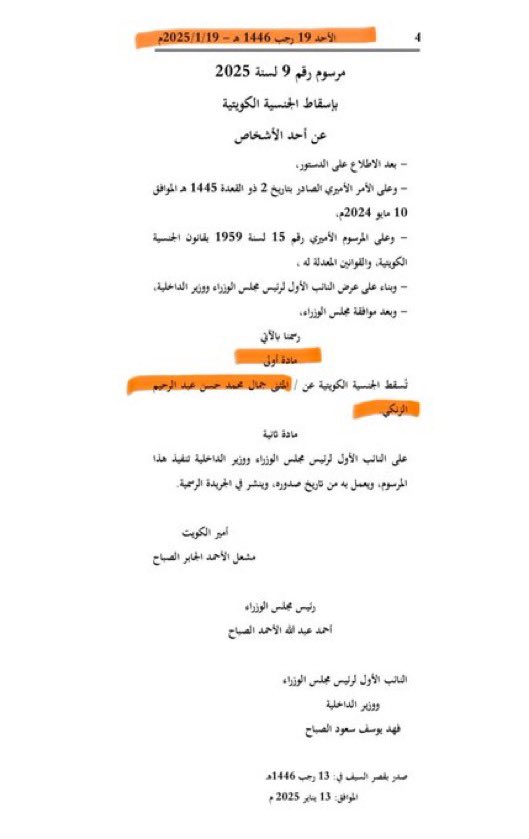 4
الأحد 19 رجب 1446 هـ – 2025/1/19م
مرسوم رقم 9 لسنة 2025
بإسقاط الجنسية الكويتية
عن أحد الأشخاص
– بعد الاطلاع على الدستور،
– وعلى الأمر الأميري الصادر بتاريخ 2 ذو القعدة 1445 هـ الموافق
10 مايو 2024م،
– وعلى المرسوم الأميري رقم 15 لسنة 1959 بقانون الجنسية
الكويتية، والقوانين المعدلة له ،
– وبناء على عرض النائب الأول لرئيس مجلس الوزراء ووزير الداخلية،
– وبعد موافقة مجلس الوزراء،
رسمنا بالآتي
مادة أولى
تُسقط الجنسية الكويتية عن / المثنى جمال محمد حسن عبد الرحيم
الزنكي.
مادة ثانية
على النائب الأول لرئيس مجلس الوزراء ووزير الداخلية تنفيذ هذا
المرسوم، ويعمل به من تاريخ صدوره، وينشر في الجريدة الرسمية.
أمير الكويت
مشعل الأحمد الجابر الصباح
رئيس مجلس الوزراء
أحمد عبد الله الأحمد الصباح
النائب الأول لرئيس مجلس الوزراء
ووزير الداخلية
فهد يوسف سعود الصباح
صدر بقصر السيف في: 13 رجب 1446هـ
الموافق: 13 يناير 2025 م